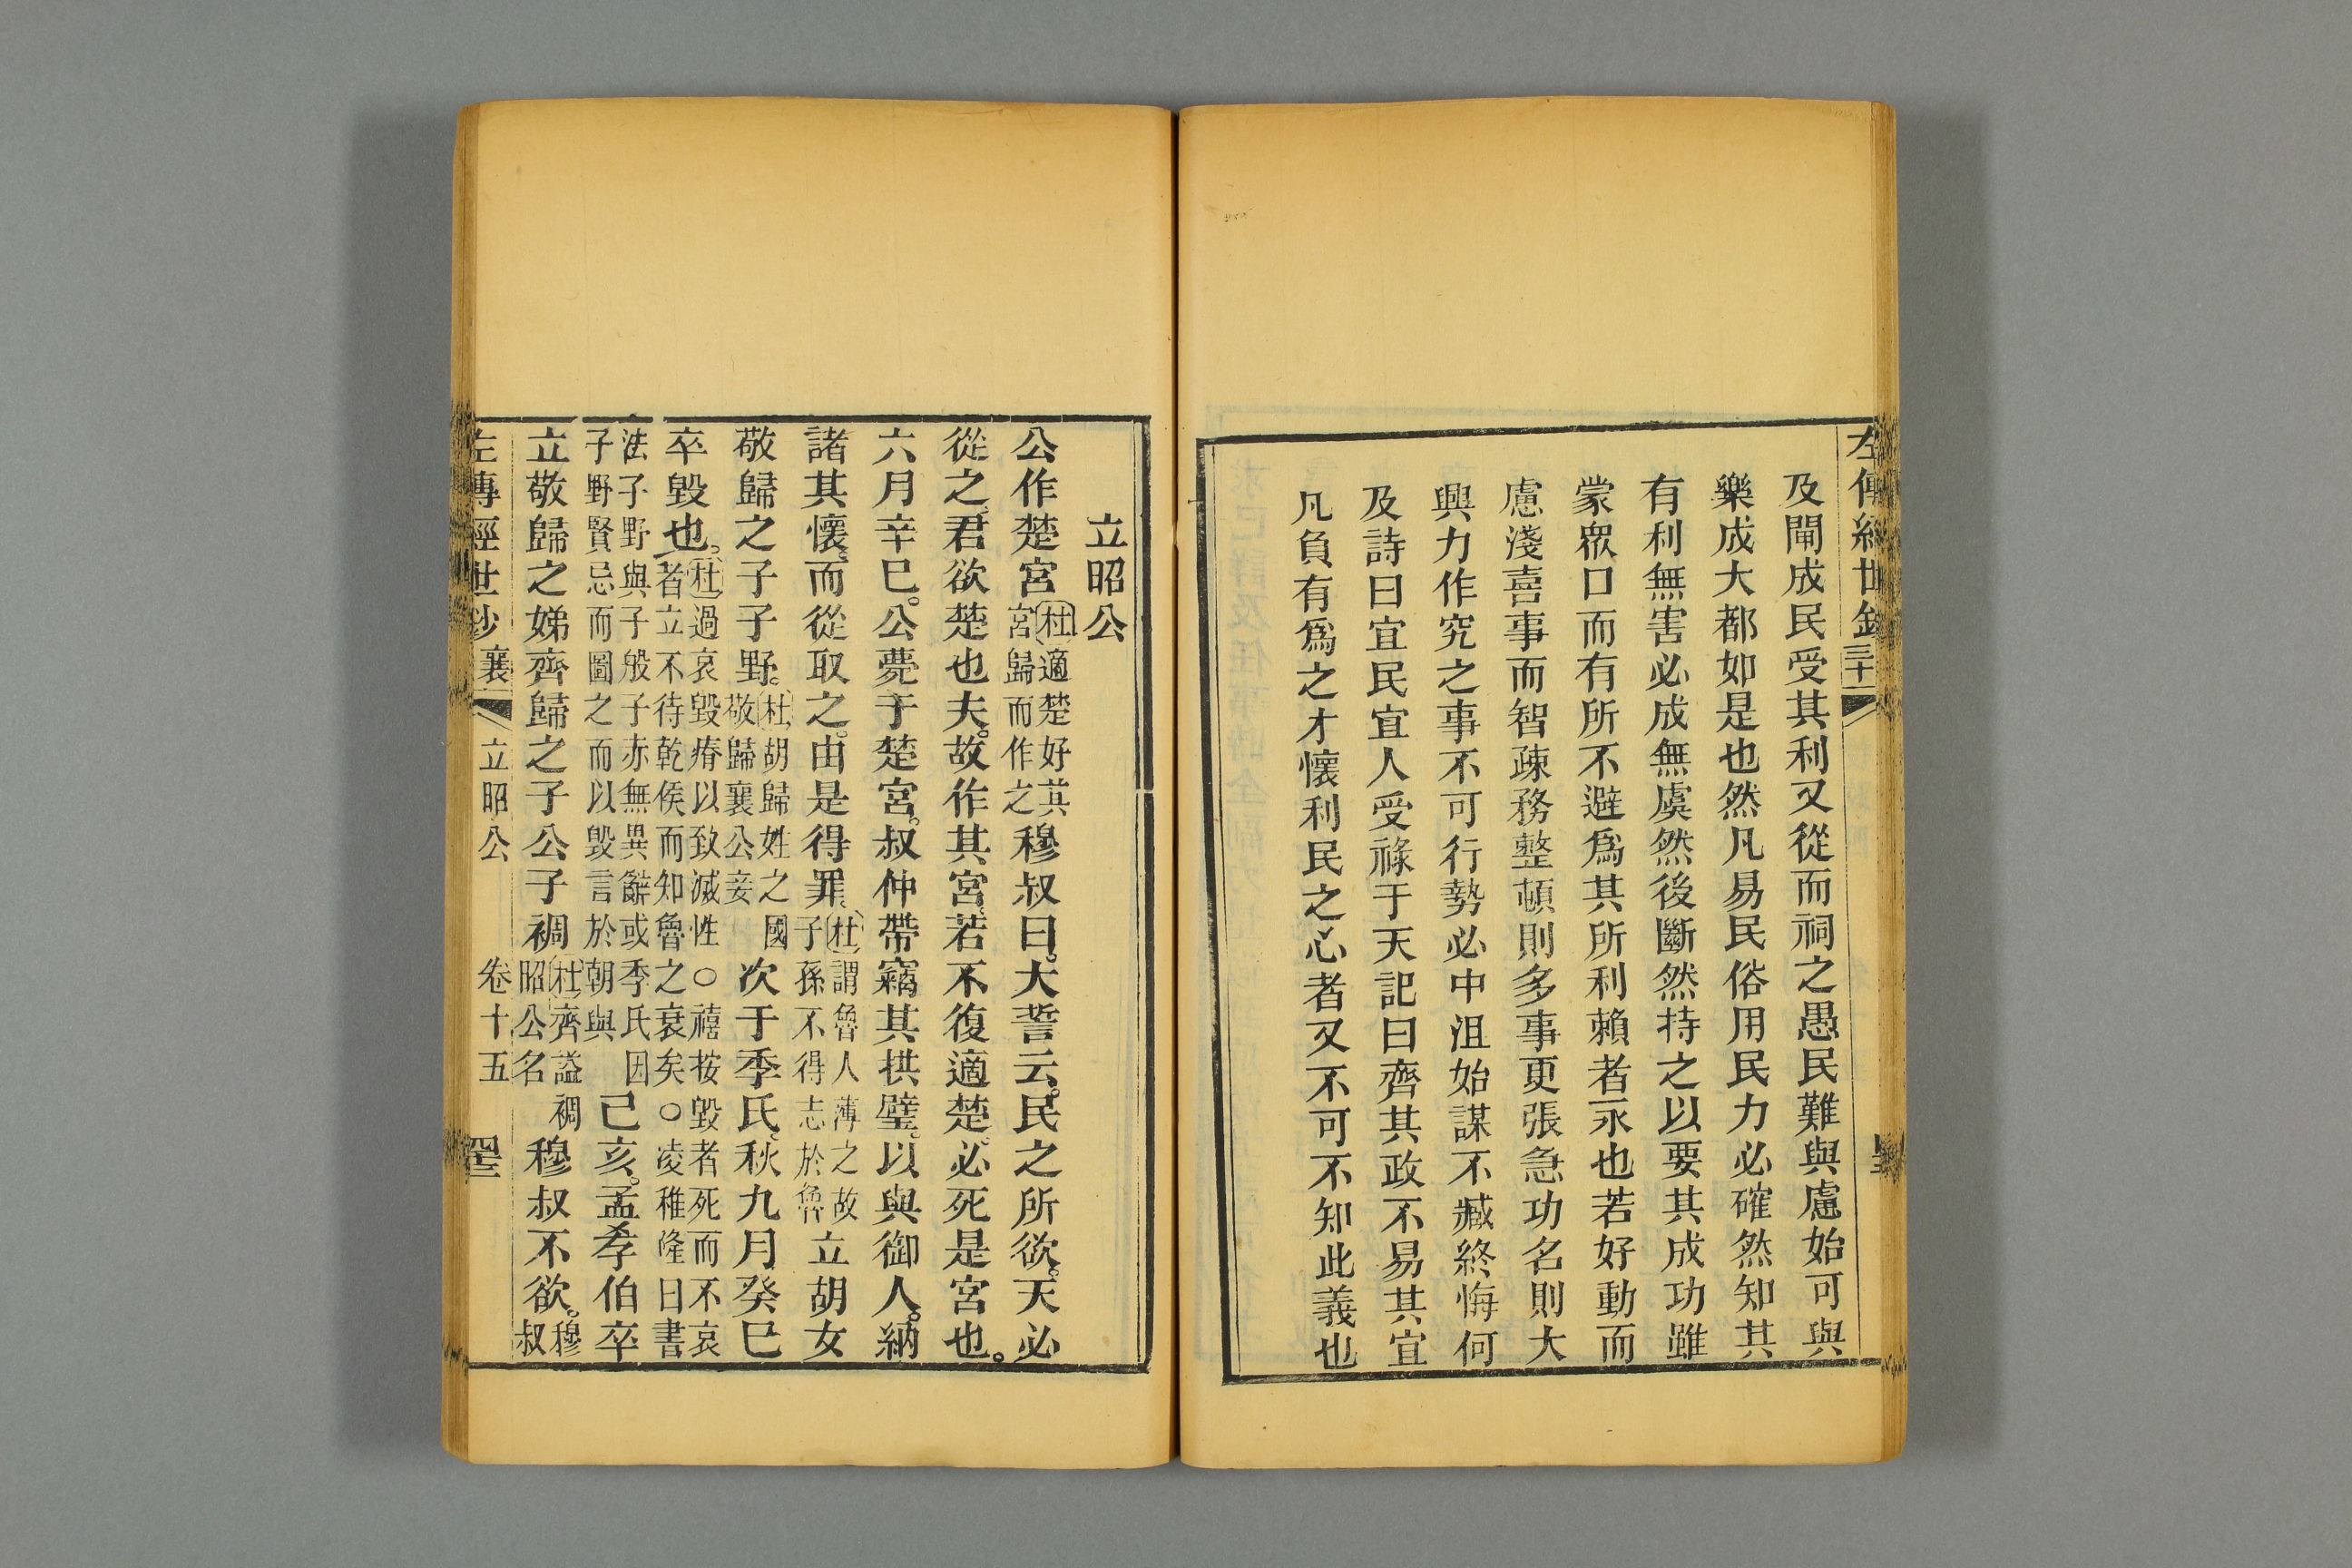 左傳經世鈔
三十一
及閘成民受其利又從而祠之愚民難與慮始可與
樂成大都如是也然凡易民俗用民力必確然知其
有利無害必成無虞然後斷然持之以要其成功雖
蒙眾口而有所不避爲其所利賴者永也若好動而
慮淺喜事而智疎務整頓則多事更張急功名則大
興力作究之事不可行勢必中沮始謀不臧終悔何
及詩曰宜民宜人受祿于天記曰齊其政不易其宜
凡負有爲之才懷利民之心者又不可不知此義也
立昭公
公作楚宮杜適楚好其宮歸而作之穆叔曰大誓云民之所欲天必
從之君欲楚也夫故作其宮若不復適楚必死是宮也。
六月辛巳。公薨于楚宮。叔仲帶竊其拱璧。以與御人。納
諸其懷。而從取之。由是得罪。杜謂魯人薄之故子孫不得志於魯立胡女
敬歸之子子野。杜胡歸姓之國敬歸襄公妾次于季氏秋九月癸巳
卒毀也。杜過哀毀瘠以致滅性○禧按毀者死而不哀者立不待乾侯而知魯之衰矣○凌稚隆曰書
法子野與子般子赤無異辭或季氏因子野賢忌而圖之而以毀言於朝與己亥。孟孝伯卒
立敬歸之娣齊歸之子公子裯杜齊謚裯昭公名穆叔不欲。穆叔
左傳經世鈔
襄
立昭公
卷十五